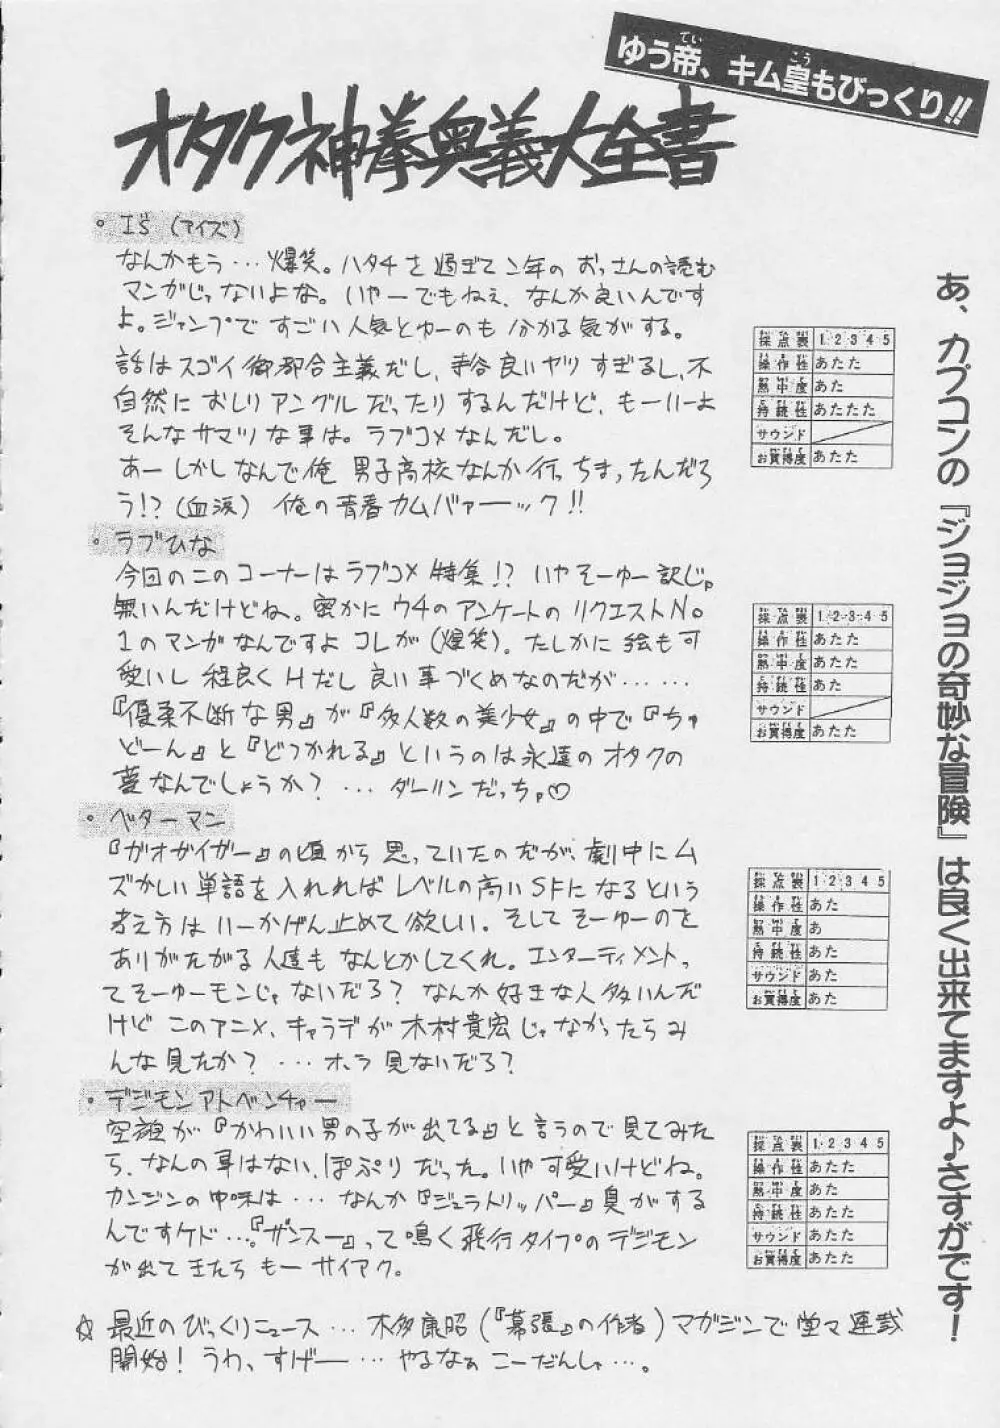 ゆう帝、キム皇もびっくり!!
オタク神拳奥義大全書
・I's (アイズ)
なんかもう…爆笑。ハタチを過ぎて2年のおっさんの読む
マンガじゃないよな。いやーでもねぇ、なんか良いんです
よ。ジャンプですごい人気とゆーのも分かる気がする。
話はスゴイ御都合主義だし、寺谷良いヤツすぎるし、不
自然におしりアングルだったりするんだけど、もーいーよ
そんなサマツな事は。ラブコメなんだし。
あーしかしなんで俺 男子高校なんか行っちまったんだろ
う!?(血涙) 俺の青春カムバァーック!!
採点表 1 2 3 4 5
操作性 あたた
熱中度 あた
持続性 あたたた
サウンド
お買得度 あたた
・ラブひな
今回のこのコーナーはラブコメ特集!? いやそーゆー訳じゃ
無いんだけどね。密かにウチのアンケートのリクエストNo
1のマンガなんですよコレが(爆笑)。たしかに絵も可
愛いし程良くHだし良い事づくめなのだが……
『優柔不断な男』が『多人数の美少女』の中で『ちゅ
どーん』と『どつかれる』というのは永遠のオタクの
夢なんでしょうか?…ダーリンだっちゃ♡
採点表 1 2 3 4 5
操作性 あたた
熱中度 あたた
持続性 あた
サウンド
お買得度 あたた
・ベターマン
『ガオガイガー』の頃から思っていたのだが、劇中にム
ズかしい単語を入れればレベルの高いSFになるという
考え方はいーかげん止めて欲しい。そしてそーゆーのを
ありがたがる人達もなんとかしてくれ。エンターティメントっ
てそーゆーモンじゃないだろ?なんか好きな人多いんだ
けどこのアニメ、キャラデが木村貴宏じゃなかったらみ
んな見たか?…ホラ見ないだろ?
採点表 1 2 3 4 5
操作性 あた
熱中度 あ
持続性 あた
サウンド あた
お買得度 あた
・デジモンアドベンチャー
空旅が『かわいい男の子が出てる』と言うので見てみた
ら、なんの事はない、ぽぷりだった。いや可愛いけどね。
カンジンの中味は…なんか『ジュラトリッパー』臭がする
んですケド…。『ザンスー』って鳴く飛行タイプのデジモン
が出てきたらもーサイアク。
採点表 1 2 3 4 5
操作性 あたた
熱中度 あた
持続性 あたた
サウンド あたた
お買得度 あたた
☆ 最近のびっくりニュース…木多康昭(『幕張』の作者)マガジンで堂々連載
開始!うわ、すげー…やるなぁこーだんしゃ…。
あ、カプコンの『ジョジョの奇妙な冒険』は良く出来てますよ♪さすがです!